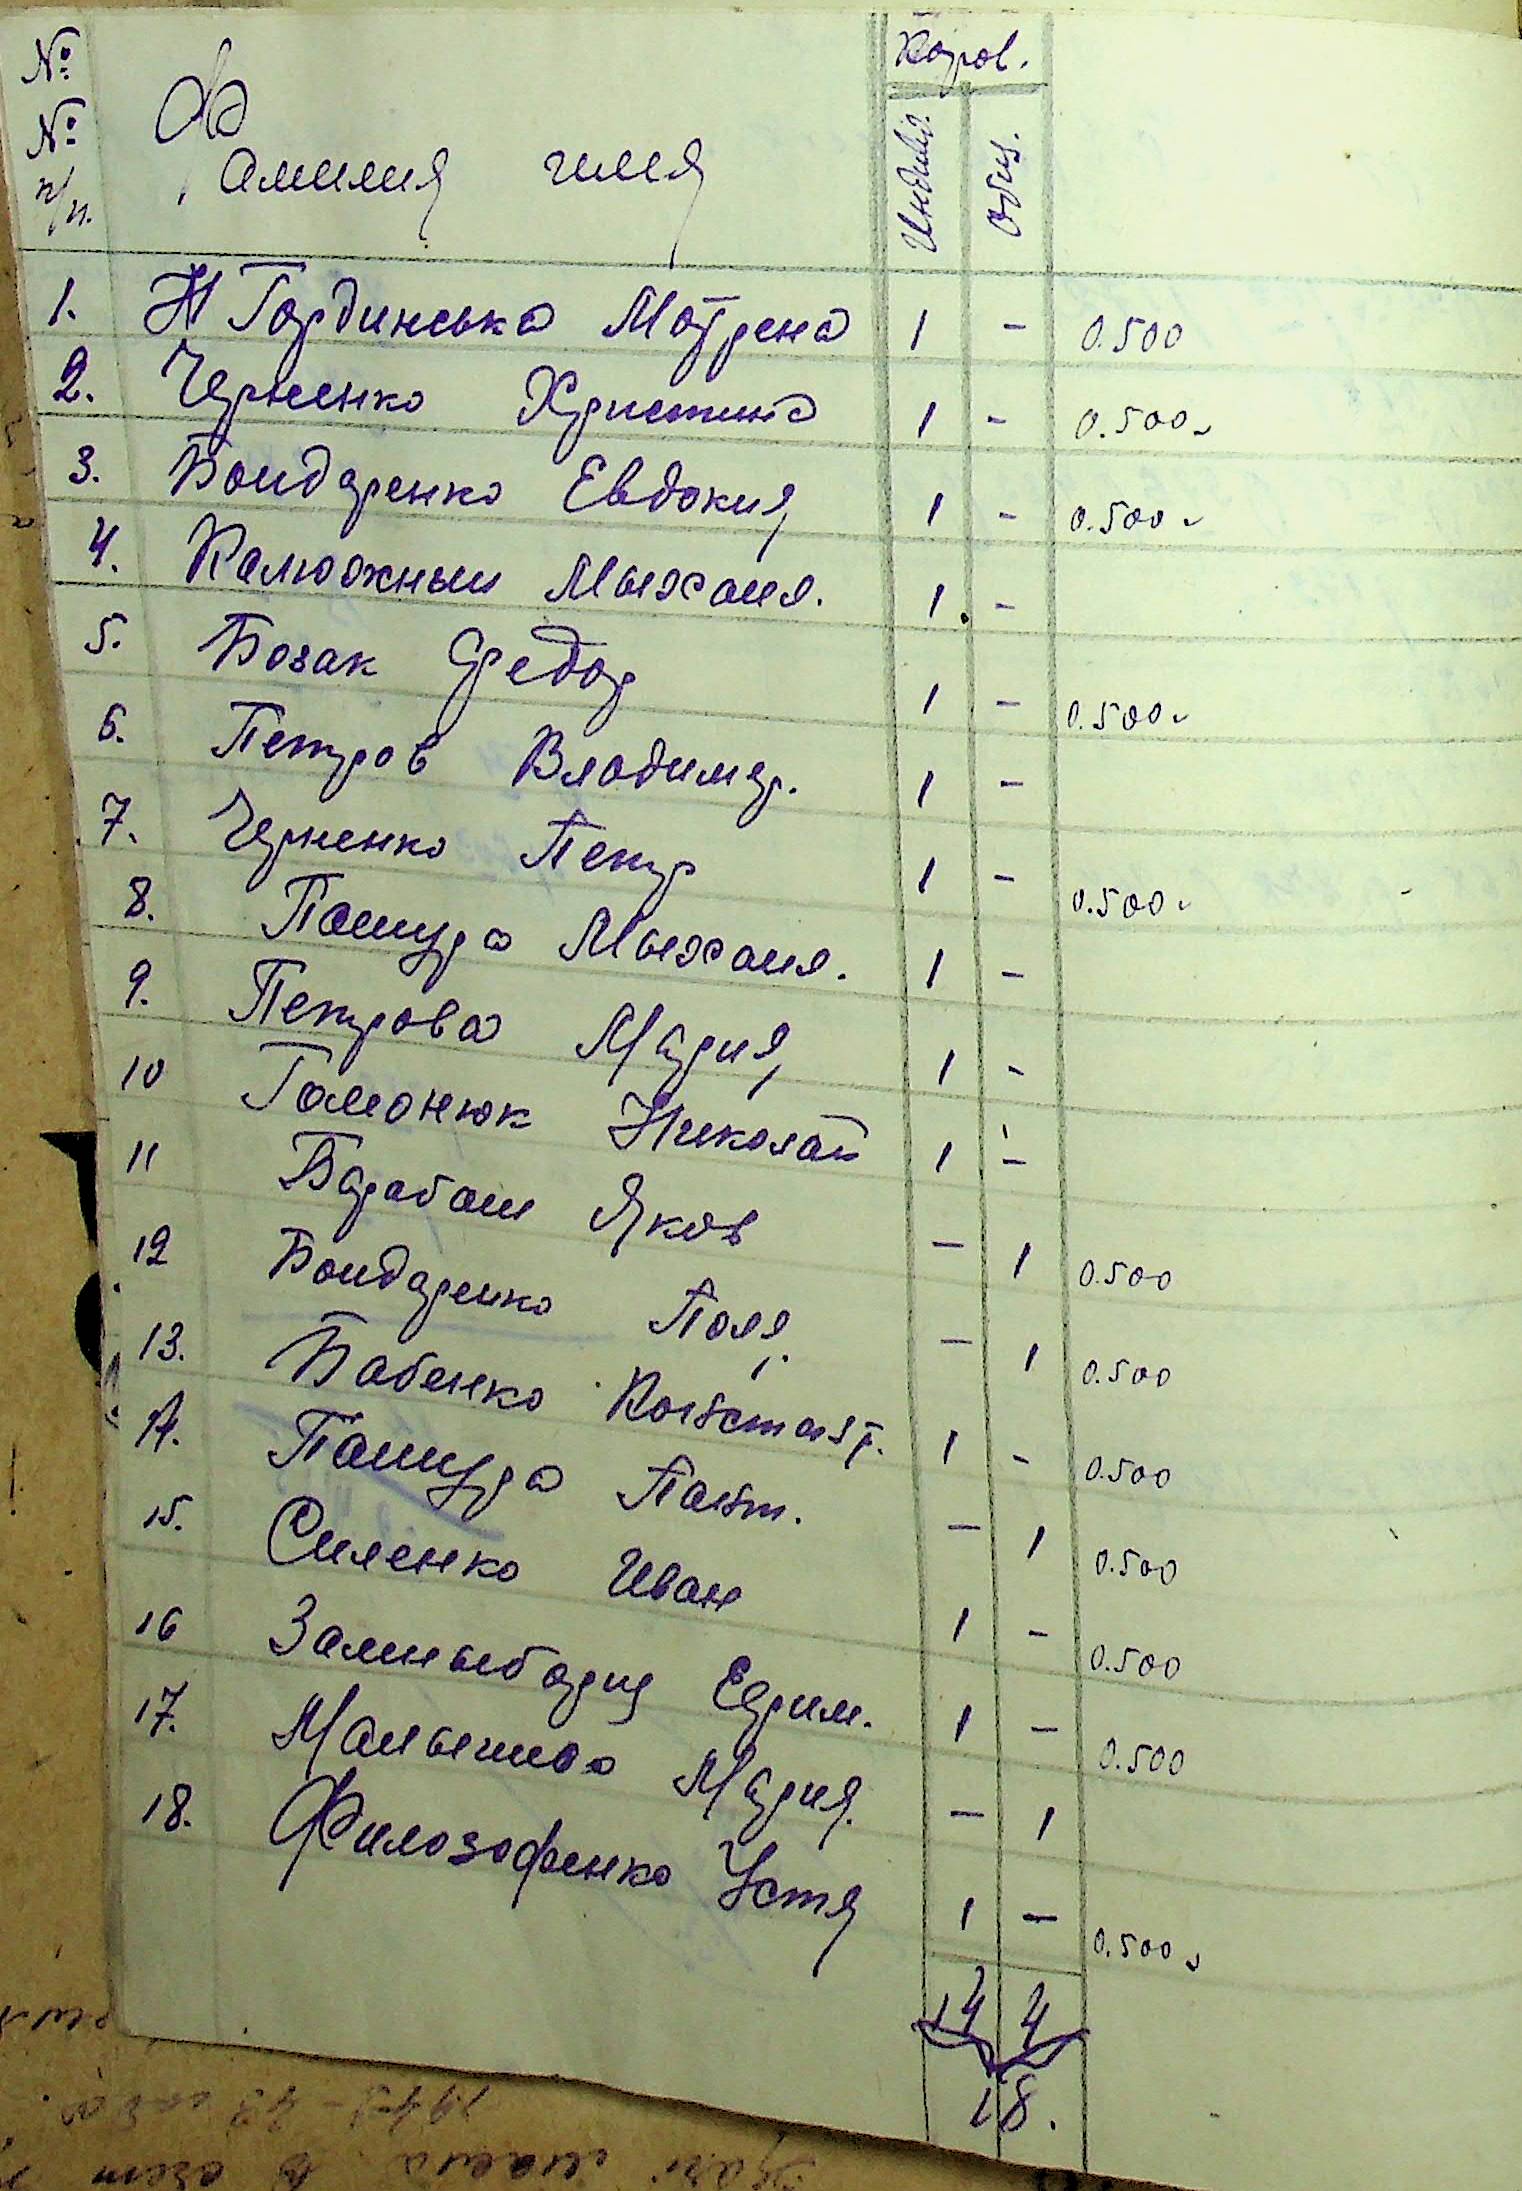 № № п/п. Фамилия имя Коров. Индивид. Общ.
1. Гординська Мотрена 1 - 0.500
2. Черненко Христина 1 - 0.500
3. Бондаренко Евдокия 1 - 0.500
4. Калюжный Мыхаил. 1 -
5. Бозак Федор 1 - 0.500
6. Петров Владимир. 1 -
7. Черненко Петр 1 - 0.500
8. Пашура Мыхаил. 1 -
9. Петрова Мария 1 -
10 Гамонюк Николай 1 -
11 Барабаш Яков - 1 0.500
12 Бондаренко Поля. - 1 0.500
13. Бабенко 1 - 0.500
14. Пашура - 1 0.500
15. Силенко Иван 1 - 0.500
16 Ефим. 1 - 0.500
17. Мария. - 1
18. Философенко Устя 1 - 0.500
14 4
18.